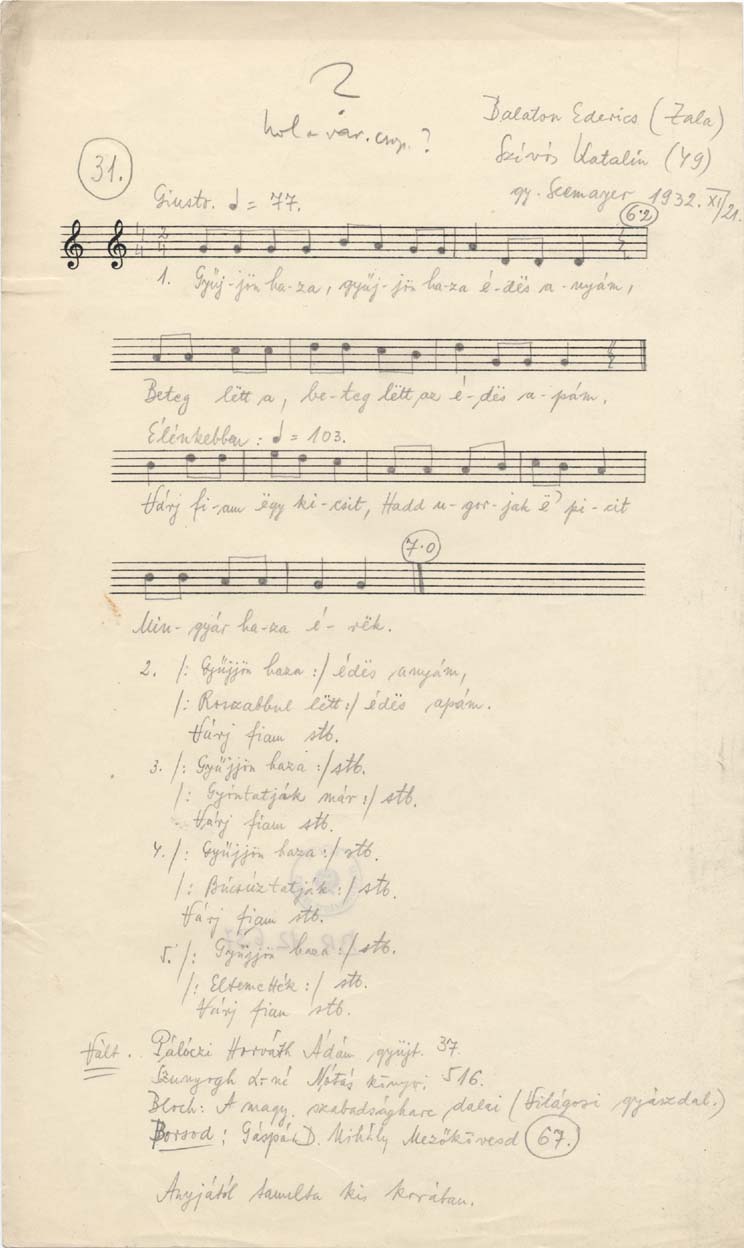 ?
hol a vár. csop. ?
Balaton Ederics (Zala)
Szívós Katalin (49)
gy. Seemayer 1932. XI/21.
31.
Giusto. = 77.
6·2
4 2
4 4
1. Gyüj-jön ha-za, gyüj-jön ha-za é-dës a-nyám,
Beteg lëtt a, be-teg lëtt az é-dës a-pám.
Élénkebben: = 103.
Várj fi-am ëgy ki-csit, Hadd u-gor-jak ë' pi-cit
7·0
Min-gyár ha-za é-rëk.
2. /: Gyüjjön haza :/ édës anyám,
/: Roszabbul lëtt :/ édës apám.
Várj fiam stb.
3. /: Gyüjjön haza :/ stb.
/: Gyóntatják már :/ stb.
Várj fiam stb.
4. /: Gyüjjön haza :/ stb.
/: Búcsúztatják :/ stb.
Várj fiam stb.
5. /: Gyüjjön haza :/ stb.
/: Eltemették :/ stb.
Várj fiam stb.
Vált. Pálóczi Horváth Ádám gyüjt. 37.
Szunyogh L-né Nótás könyv. 516.
Bloch: A magy. szabadságharc dalai (Világosi gyászdal.)
Borsod: Gáspár D. Mihály Mezőkövesd 67.
Anyjától tanulta kis korában.